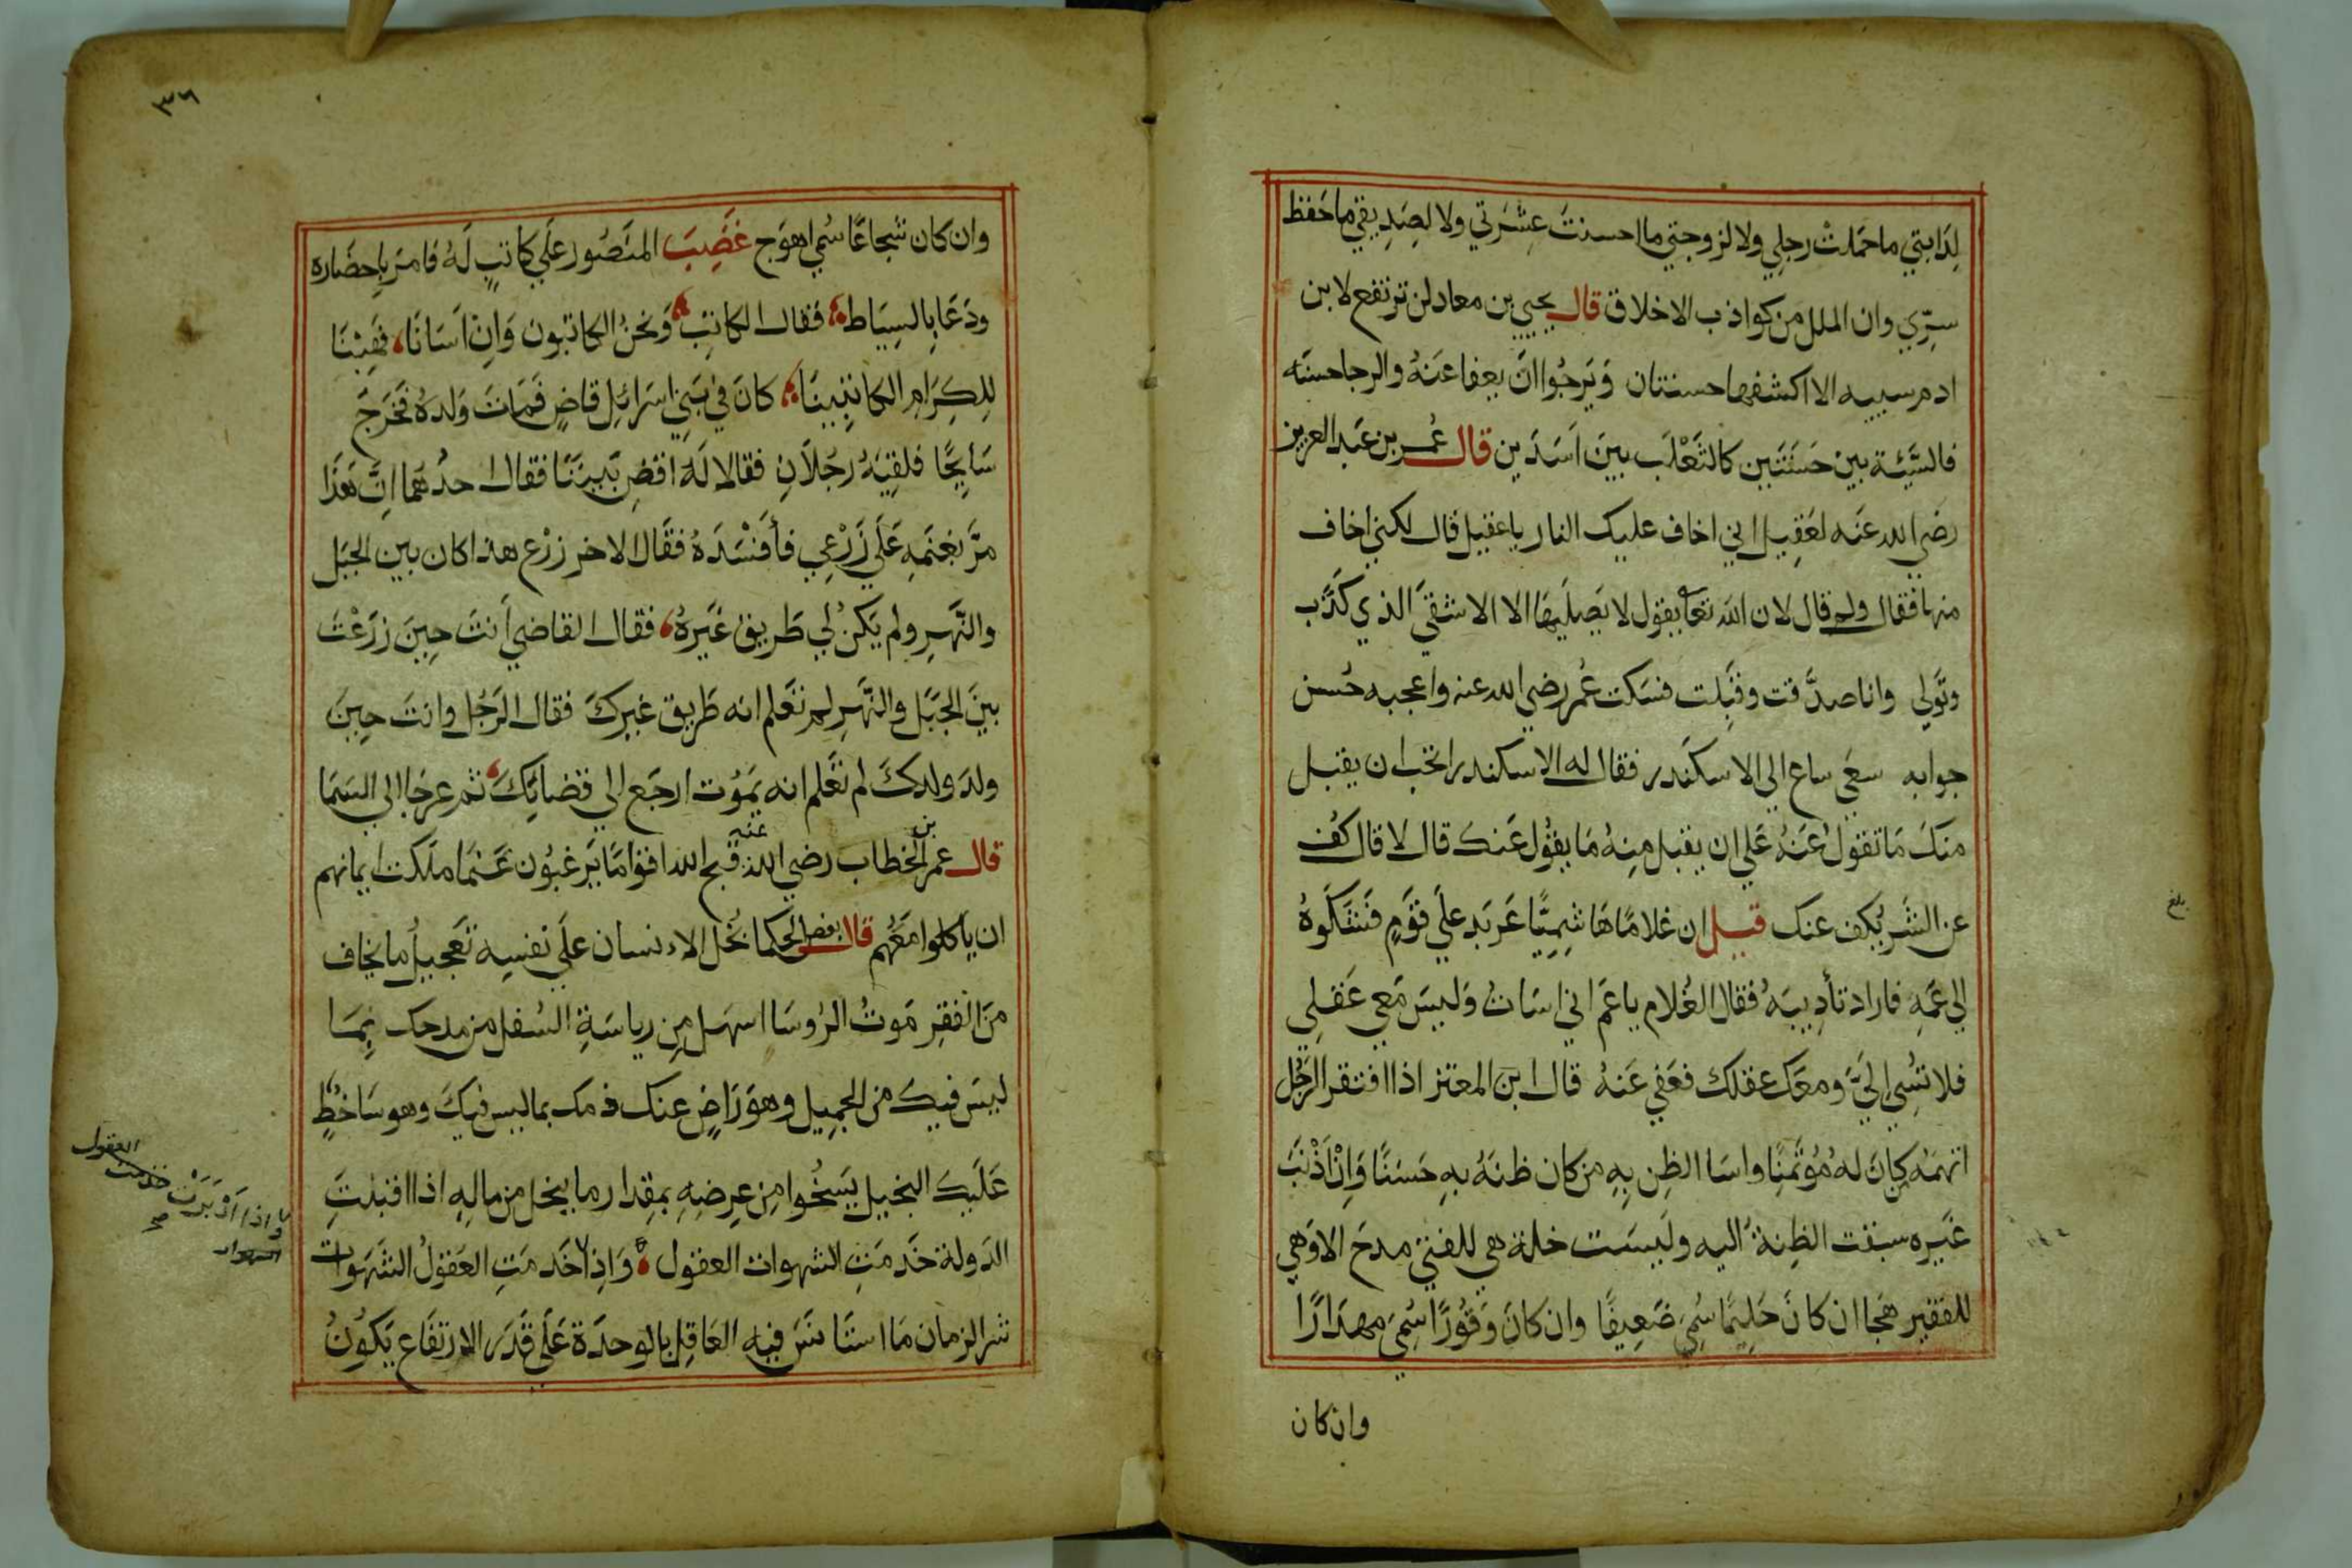 لِدَابتي ما حَمَلتْ رجلِي ولا لزوجتي ما احسنتَ عِشْرَتي ولا لصَدِيقي ما حَفظ
سِرِّي وان الملل من كواذب الاخلاق قال يحيي بن معاد لن ترتفع لابن
ادم سييه الا اكشفها حسنتان وَيَرجُوا انَّ يعفا عَنهُ والرجا حسنَه
فالسَّيّئَة بينَ حَسَنَتَين كالثَعْلَب بينَ اَسَدَين قال عُمر بن عَبد العزيز
رضي الله عَنه لعَقِيل اني اخاف عليك النار يا عقيل قال لكني اخاف
منها فقال ولم قال لان الله تعا يقول لا يَصليهَا الا الاشقيَ الذي كَذَّب
وتَولي وانا صدَّقت وقَبِلت فسَكت عُمر رضي الله عنه واعجبه حُسن
جوابه سعَي ساع الي الاسكَندر فقال له الاسكندر اتحب ان يقبل
منكَ مَا تقولُ عَنهُ عَلي ان يقبل مِنهُ مَا يقُول عَنك قال لا قال كُف
عن الشَر يُكف عنك قيل ان غلامًا هَا شِمِيًّا عَربَد علَي قَوم فَشَكَوهُ
الي عَمّهِ فاراد تأديبَهُ فقال الغُلام يا عَم اني اسَات وَليسَ مَعي عَقلِي
فلا تسُي اليَّ ومعَك عقلك فعَفي عَنهُ قال ابن المعتز اذا افتقر الرَجُل
اتهمَهُ مَن كانَ لهُ مُوتَمنًا واسَا الظِن بِهِ من كان ظنَهُ بهِ حَسَنًا وَاِنْ اَذْنبَ
غَيره سبقت الظِنةُ اليه وليسَت خلة هي للغني مدحَ الا وَهي
للفقير هَجا ان كانَ حَلِيمًا سُمي ضَعِيفًا وان كانَ وَقُورًا سُمِيَ مهذَارًا
وان كان
٣٦
وان كان شجاعًا سُمي اهوَج غَضِبَ المنَصُور علَي كاتبٍ لَهُ فامرَ باِحضَاره
ودَعَا بِالسِيَاط فقال الكاتِب وَنحنُ الكاتبون وَاِنْ اَسَانَا، فَهِبْنَا
لِلكِرَامِ الكاتبِينَا كانَ في بَني اسرَائِل قاضٍ فَمَاتَ وَلدهُ فخَرَجَ
سَايِحًا فلقِيَهُ رجُلاَنِ فقالا لَهُ اقضِ بَيننَا فقال احدُهمَا اِنَّ هَذَا
مرَّ بغنَمهِ عَلَي زَرْعِي فأَفسَدهُ فقَال الاخر زرْع هذا كان بين الجَبَل
والنَّهَرِ ولم يَكنْ لي طَريق غَيرهُ، فقال القاضي أَنتَ حِينَ زرَعْتَ
بينَ الجَبَل والنَّهَرِ لم تَعلم انه طَريق غيركَ فقال الرَجُل وانتَ حِينَ
ولدَ ولدكَ لم تَعلم انه يَمُوت ارجَع الي قضائِكَ، ثم عرجَا الي السَمَا
قال عمر بن الخطاب رضي الله عنه قبح الله اقوامًا يَرغبُون عَنما ملَكت ايمانهم
ان ياكلوا مَعَهُم قال بعض الحكما بُخل الاءنسان علَي نفسِه تَعجيلُ ما يخاف
منَ الفقر مَوتُ الرُوسَا اسهَل مِن رياسَةِ السُفل من مدحك بِمَا
ليسَ فيك من الجميل وهوَ رَاضٍ عنك ذمك بما ليس فيكَ وهو سَاخطٌ
عَلَيك البخيل يَسخُوا مِن عِرضِهِ بمقِدَار ما يبخل من مالهِ اذا اقبلتِ
الدَولة خَدمَتِ الشهوات العقول وَاِذا خَدمَتِ العَقولُ الشَهَوات
شر الزمان مَا استَانسَ فيه العَاقِل بالوحدَة عَلَي قَدَر الارتفَاع يَكُونُ
واذا اَدْبَرَتْ خدمت
العقول
الشهوات
صح
بلغ